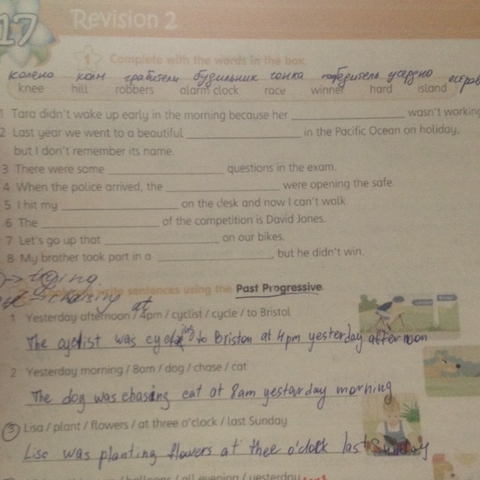 17 Revision 2
1 Complete with the words in the box.
колено холм грабители будильник гонка победитель усердно остров
knee hill robbers alarm clock race winner hard island
1 Tara didn't wake up early in the morning because her ___ wasn't working
2 Last year we went to a beautiful ___ in the Pacific Ocean on holiday,
but I don't remember its name.
3 There were some ___ questions in the exam.
4 When the police arrived, the ___ were opening the safe.
5 I hit my ___ on the desk and now I can't walk.
6 The ___ of the competition is David Jones.
7 Let's go up that ___ on our bikes.
8 My brother took part in a ___, but he didn't win.
write sentences using the Past Progressive
chasing at
1 Yesterday afternoon / 4pm / cyclist / cycle / to Bristol
The cyclist was cycling to Briston at 4pm yesterday afternoon
2 Yesterday morning / 8am / dog / chase / cat
The dog was chasing cat at 8am yestarday morning
3 Lisa / plant / flowers / at three o'clock / last Sunday
Lise was planting flowers at thee o'clock last Sunday
balloons / all evening / yesterday